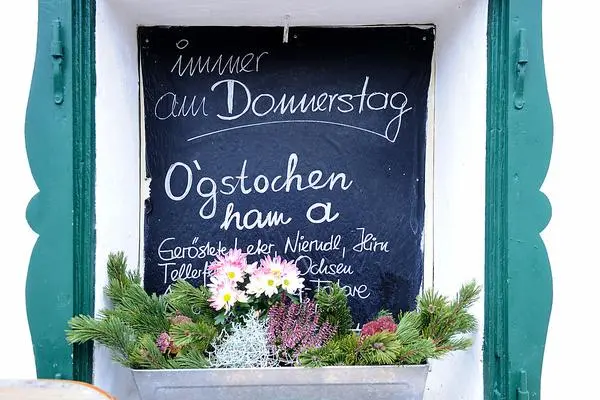 immer
am Donnerstag
O'gstochen
ham a
Geröstete Leber, Nierndl, Hirn
Ochsen